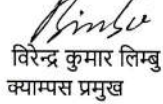 विरेन्द्र कुमार लिम्बु
क्याम्पस प्रमुख